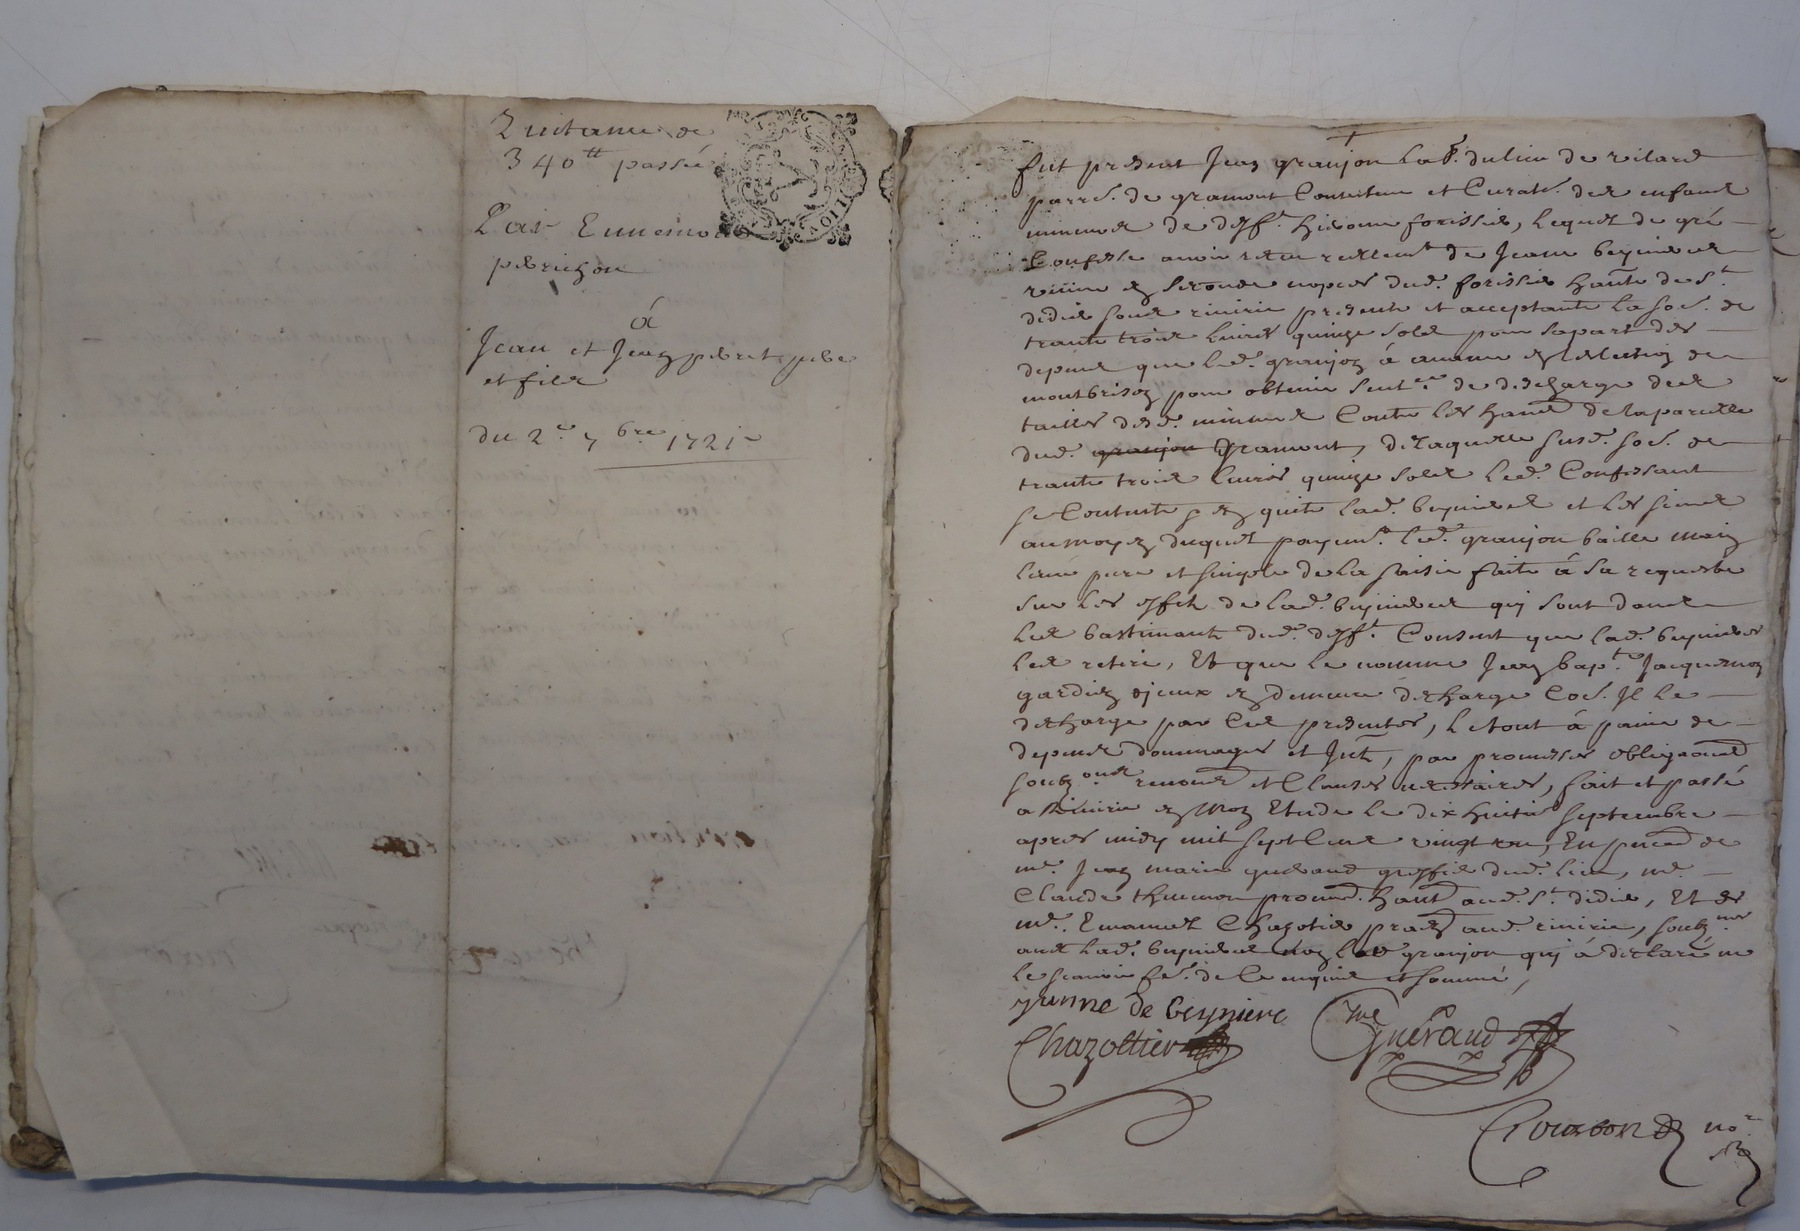 Quitance de
340tt passée
Par Ennemond
pebrichon
à
Jean et Jean pebret pere
et filz
du 2e 7bre 1721
fut present Jean granjon lab. du lieu de vilard
parre. de gramont tuteur et Curatr. des enfans
mineurs de deff.t hierome forissier, lequel de gré
Confesse avoir receu reellemt de Jeane
vefve en secondes nopces dud. forissier habte de St
didier sous riverie presente et acceptante la soe. de
trante trois livres quinze sols pour sa part des
depens que led. granjon à avancé en lelection de
montbrison pour obtenir sentce de descharge des
tailles desd. mineurs Contre les hans de la parcelle
dud. granjon Gramont, de laquelle susd. soe. de
trante trois livres quinze sols led. Confessant
se Contente et en quite lad. et les siens
au moyen duquel payemt. led. granjon baille main
levée pure et simple de la saisie faite à sa requeste
sur les effets de lad. qui sont dans
les bastimants dud. deff.t Consent que lad.
les retire, Et que le nommé Jean bapte Jacquemon
gardien d'jceux en demeure deschargé Coe. Jl le
descharge par Ces presentes, le tout à paine de
depens dommages et Jnts, par promesses obligaons
soubzons renons et Clauses necessaires, fait et passé
a Riverie en mon Etude le dix huitie septembre
apres midy mil sept Cens vingt un, En presence de
me. Jean marie gueraud greffier dud. lieu, me.
Claude thimonier habt aud. St didier, Et de
me. Emanuel Chazotier pratn aud. riverie, soubznes
avec lad. non led granjon qui à déclaré ne
le scavoir fe. de Ce enquis et sommé,
Chazottier
Gueraud
Courbon nore